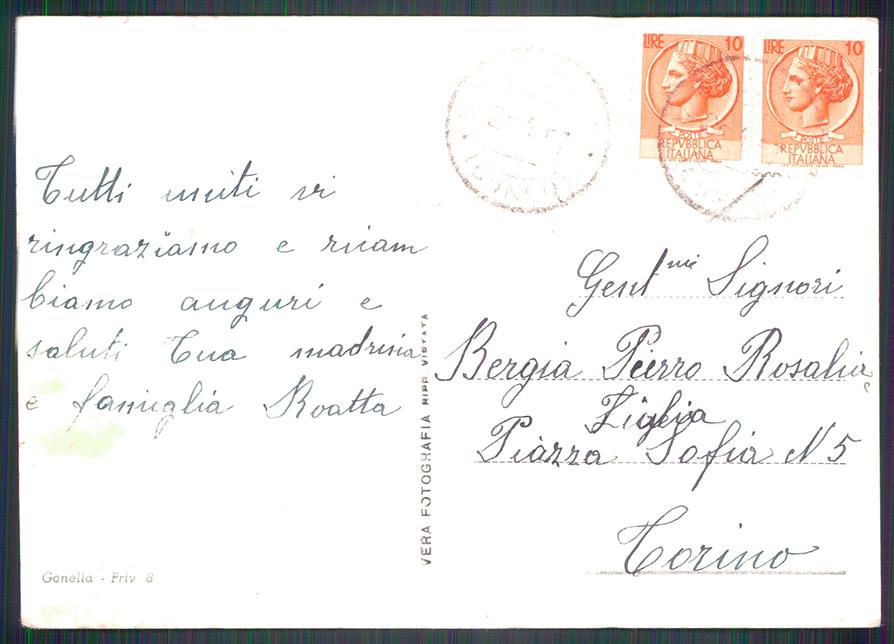 LIRE 10
POSTE
REPVBBLICA
ITALIANA
LIRE 10
POSTE
REPVBBLICA
ITALIANA
Tutti uniti vi
ringraziamo e ricam
biamo auguri e
saluti Tua madrina
e famiglia Roatta
Gent mi Signori
Bergia Pierro Rosalia
e Ziglia
Piazza Sofia N 5
Torino
VERA FOTOGRAFIA RIPR. VIETATA
Gonella - Priv 8